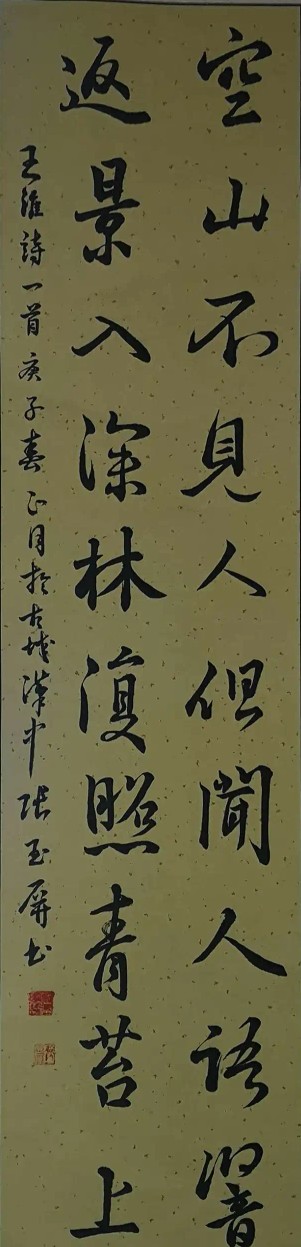 空山不見人但聞人語響
返景入深林復照青苔上
王維詩一首庚子春正月於古城漢中張玉屏書